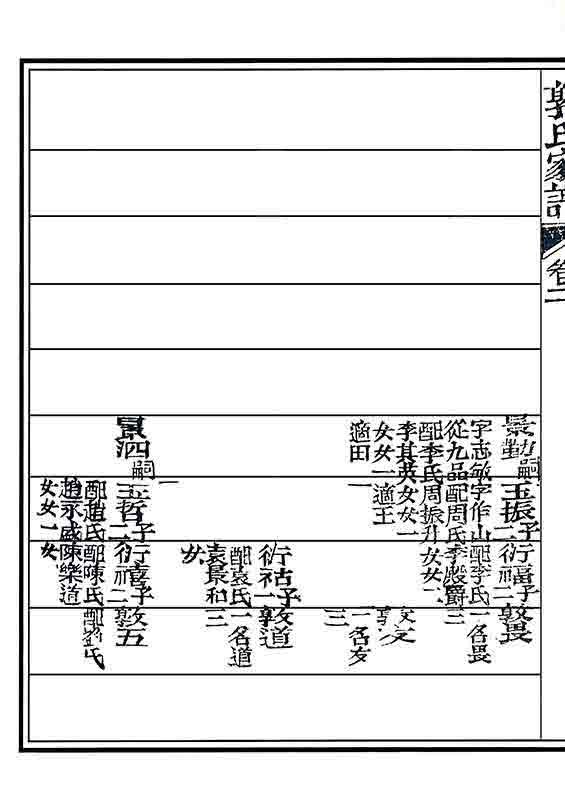 郭氏家譜 卷二
景勤嗣玉振子二衍福子二敦畏
字志敏字作山配李氏一名畏
從九品配周氏李殿爵三
配李氏周振升女女二
李其英女女一
女女一適王
適田一
敦友
一名友
三
衍祜子一敦道
配袁氏一名道
袁景和三
女
景泗嗣一玉哲子二衍禧子二敦五
配趙氏配陳氏配氏
趙永盛陳樂道
女女一女